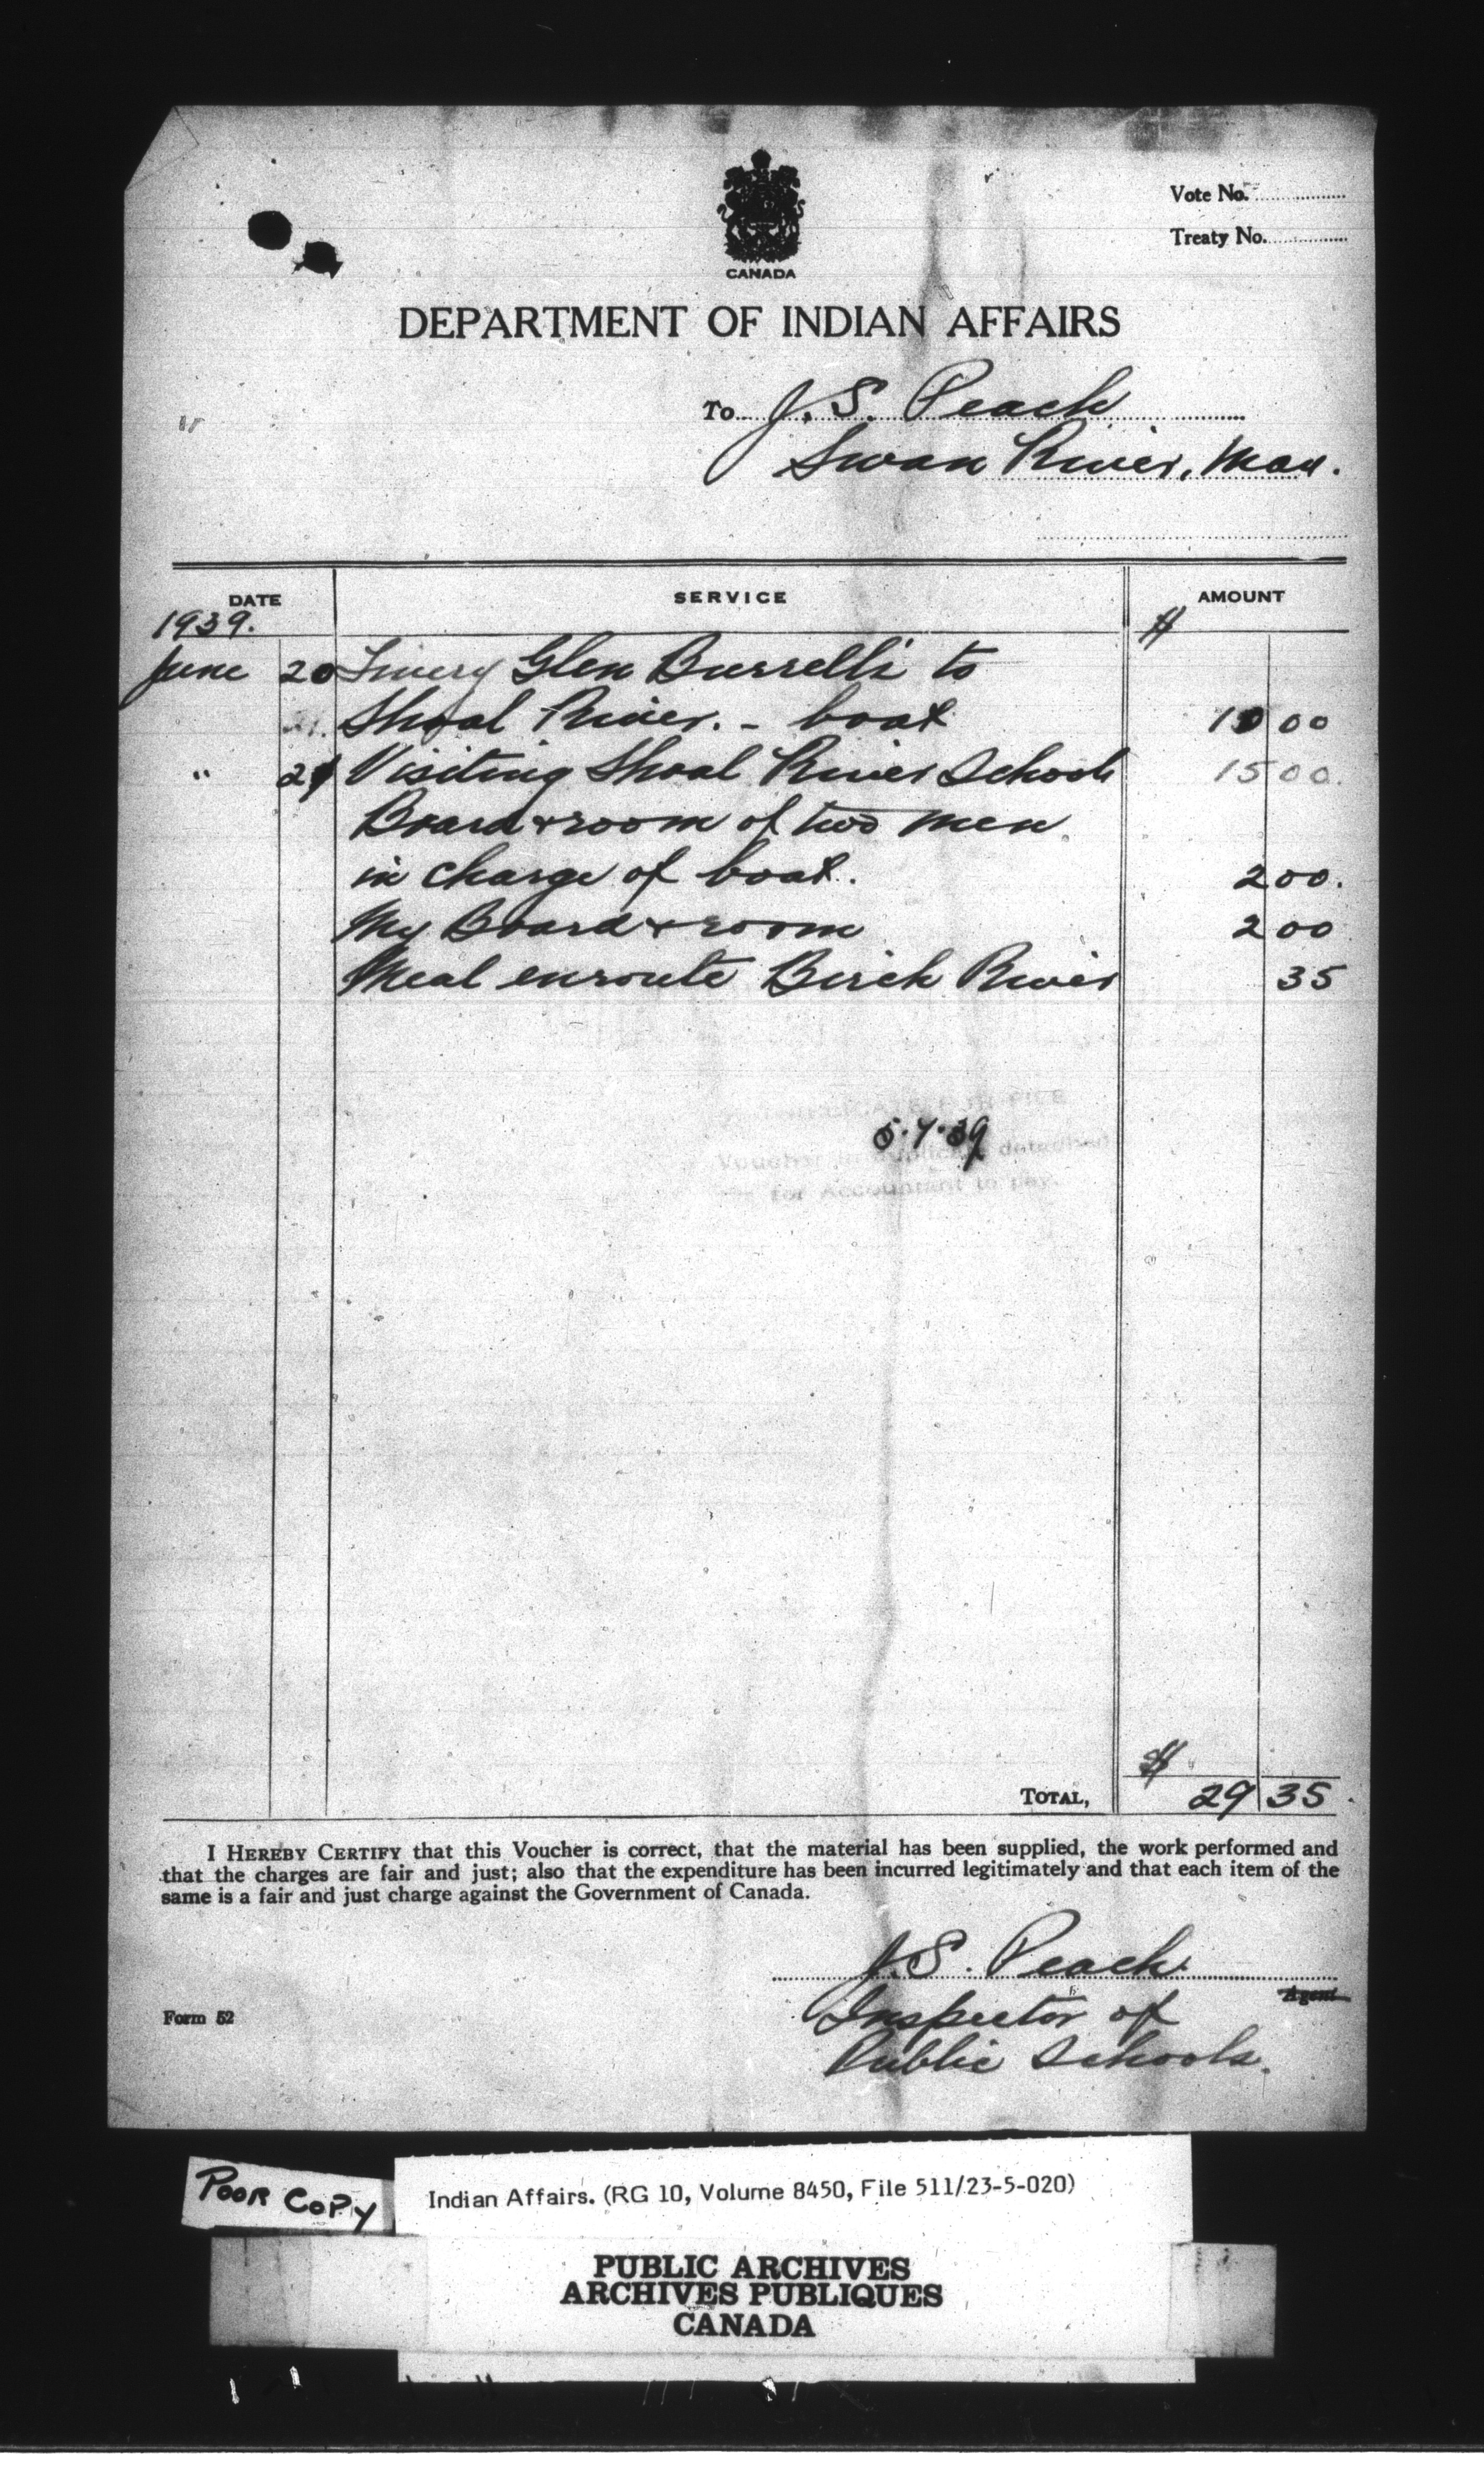 Vote No.
Treaty No.
CANADA
DEPARTMENT OF INDIAN AFFAIRS
To J. S. Peach
Swan River, Man.
DATE SERVICE AMOUNT
1939. $
June 20 Livery Glen Burrell's to
21. Shoal River. - boat 10 00
" 21 Visiting Shoal River School 15 00.
Board & room of two men
in charge of boat. 2 00.
My Board & room 2 00
Meal enroute Birch River 35
5.7.39
Voucher in duplicate
for Accountant to pay.
$
TOTAL, 29 35
I HEREBY CERTIFY that this Voucher is correct, that the material has been supplied, the work performed and
that the charges are fair and just; also that the expenditure has been incurred legitimately and that each item of the
same is a fair and just charge against the Government of Canada.
J. S. Peach
Agent
Inspector of
Form 52
Public Schools.
POOR COPY
Indian Affairs. (RG 10, Volume 8450, File 511/23-5-020)
PUBLIC ARCHIVES
ARCHIVES PUBLIQUES
CANADA